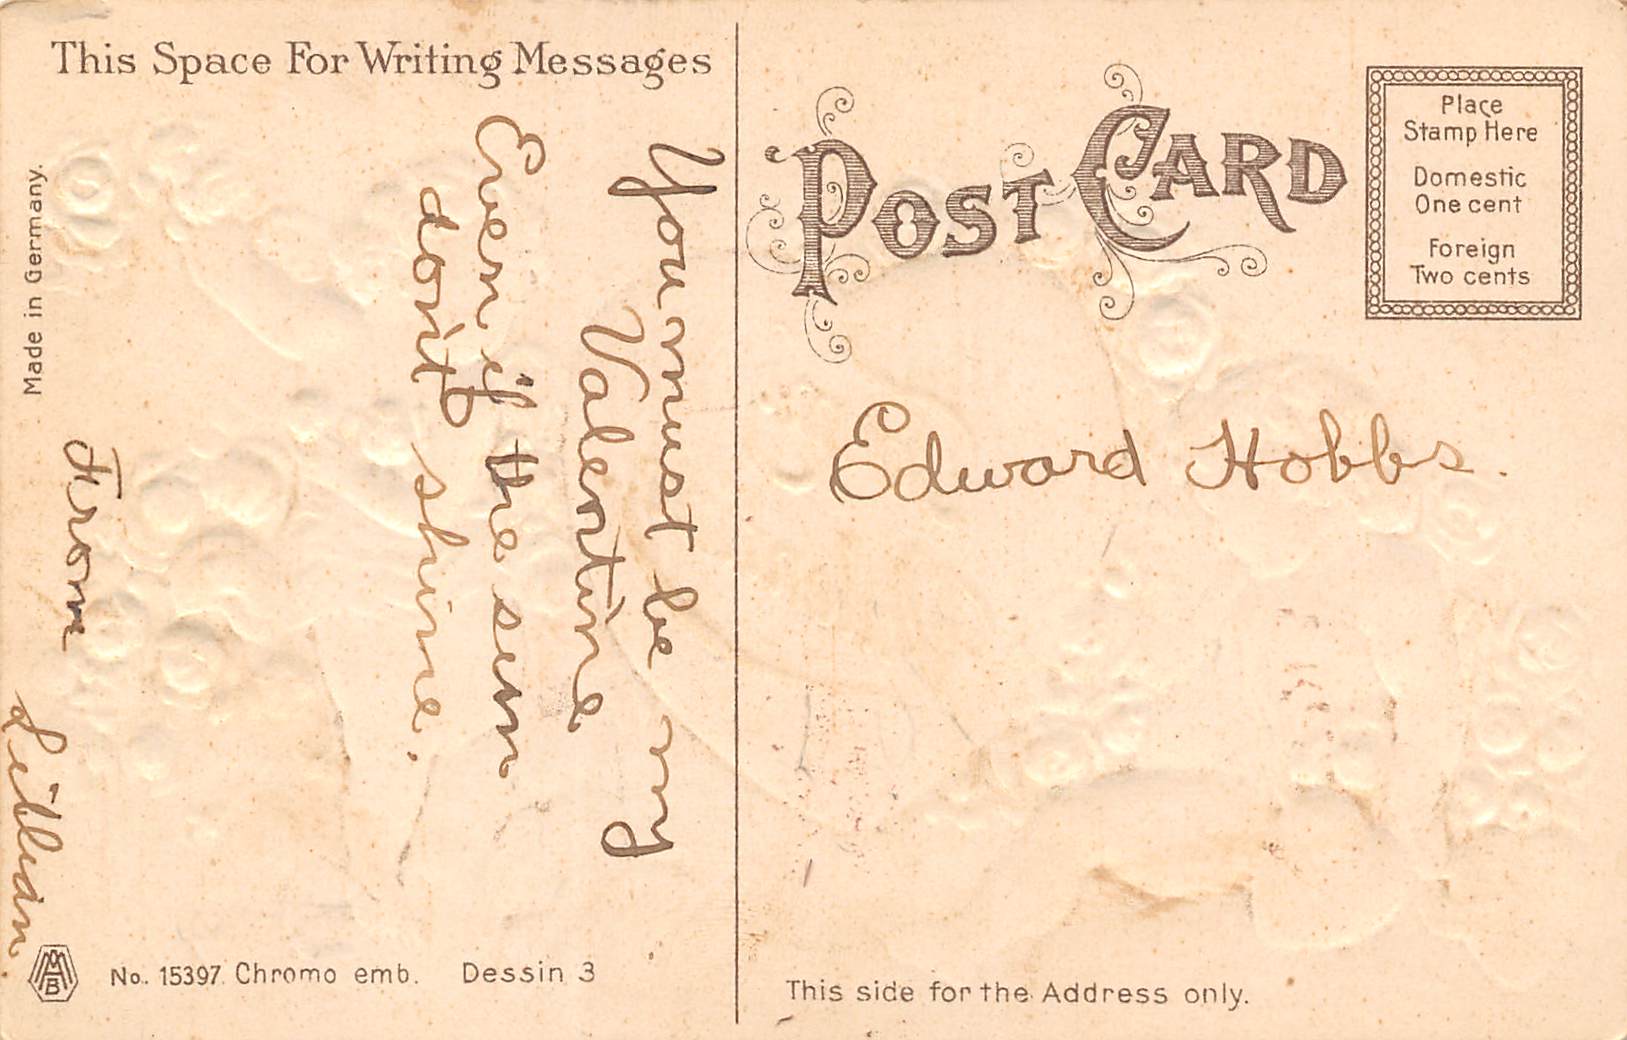 This Space For Writing Messages
You must be my
Valentine
Even if the sun
don't shine.
From
Lillian
Made in Germany.
No. 15397. Chromo emb. Dessin 3
POST CARD
Place
Stamp Here
Domestic
One cent
Foreign
Two cents
Edward Hobbs.
This side for the Address only.